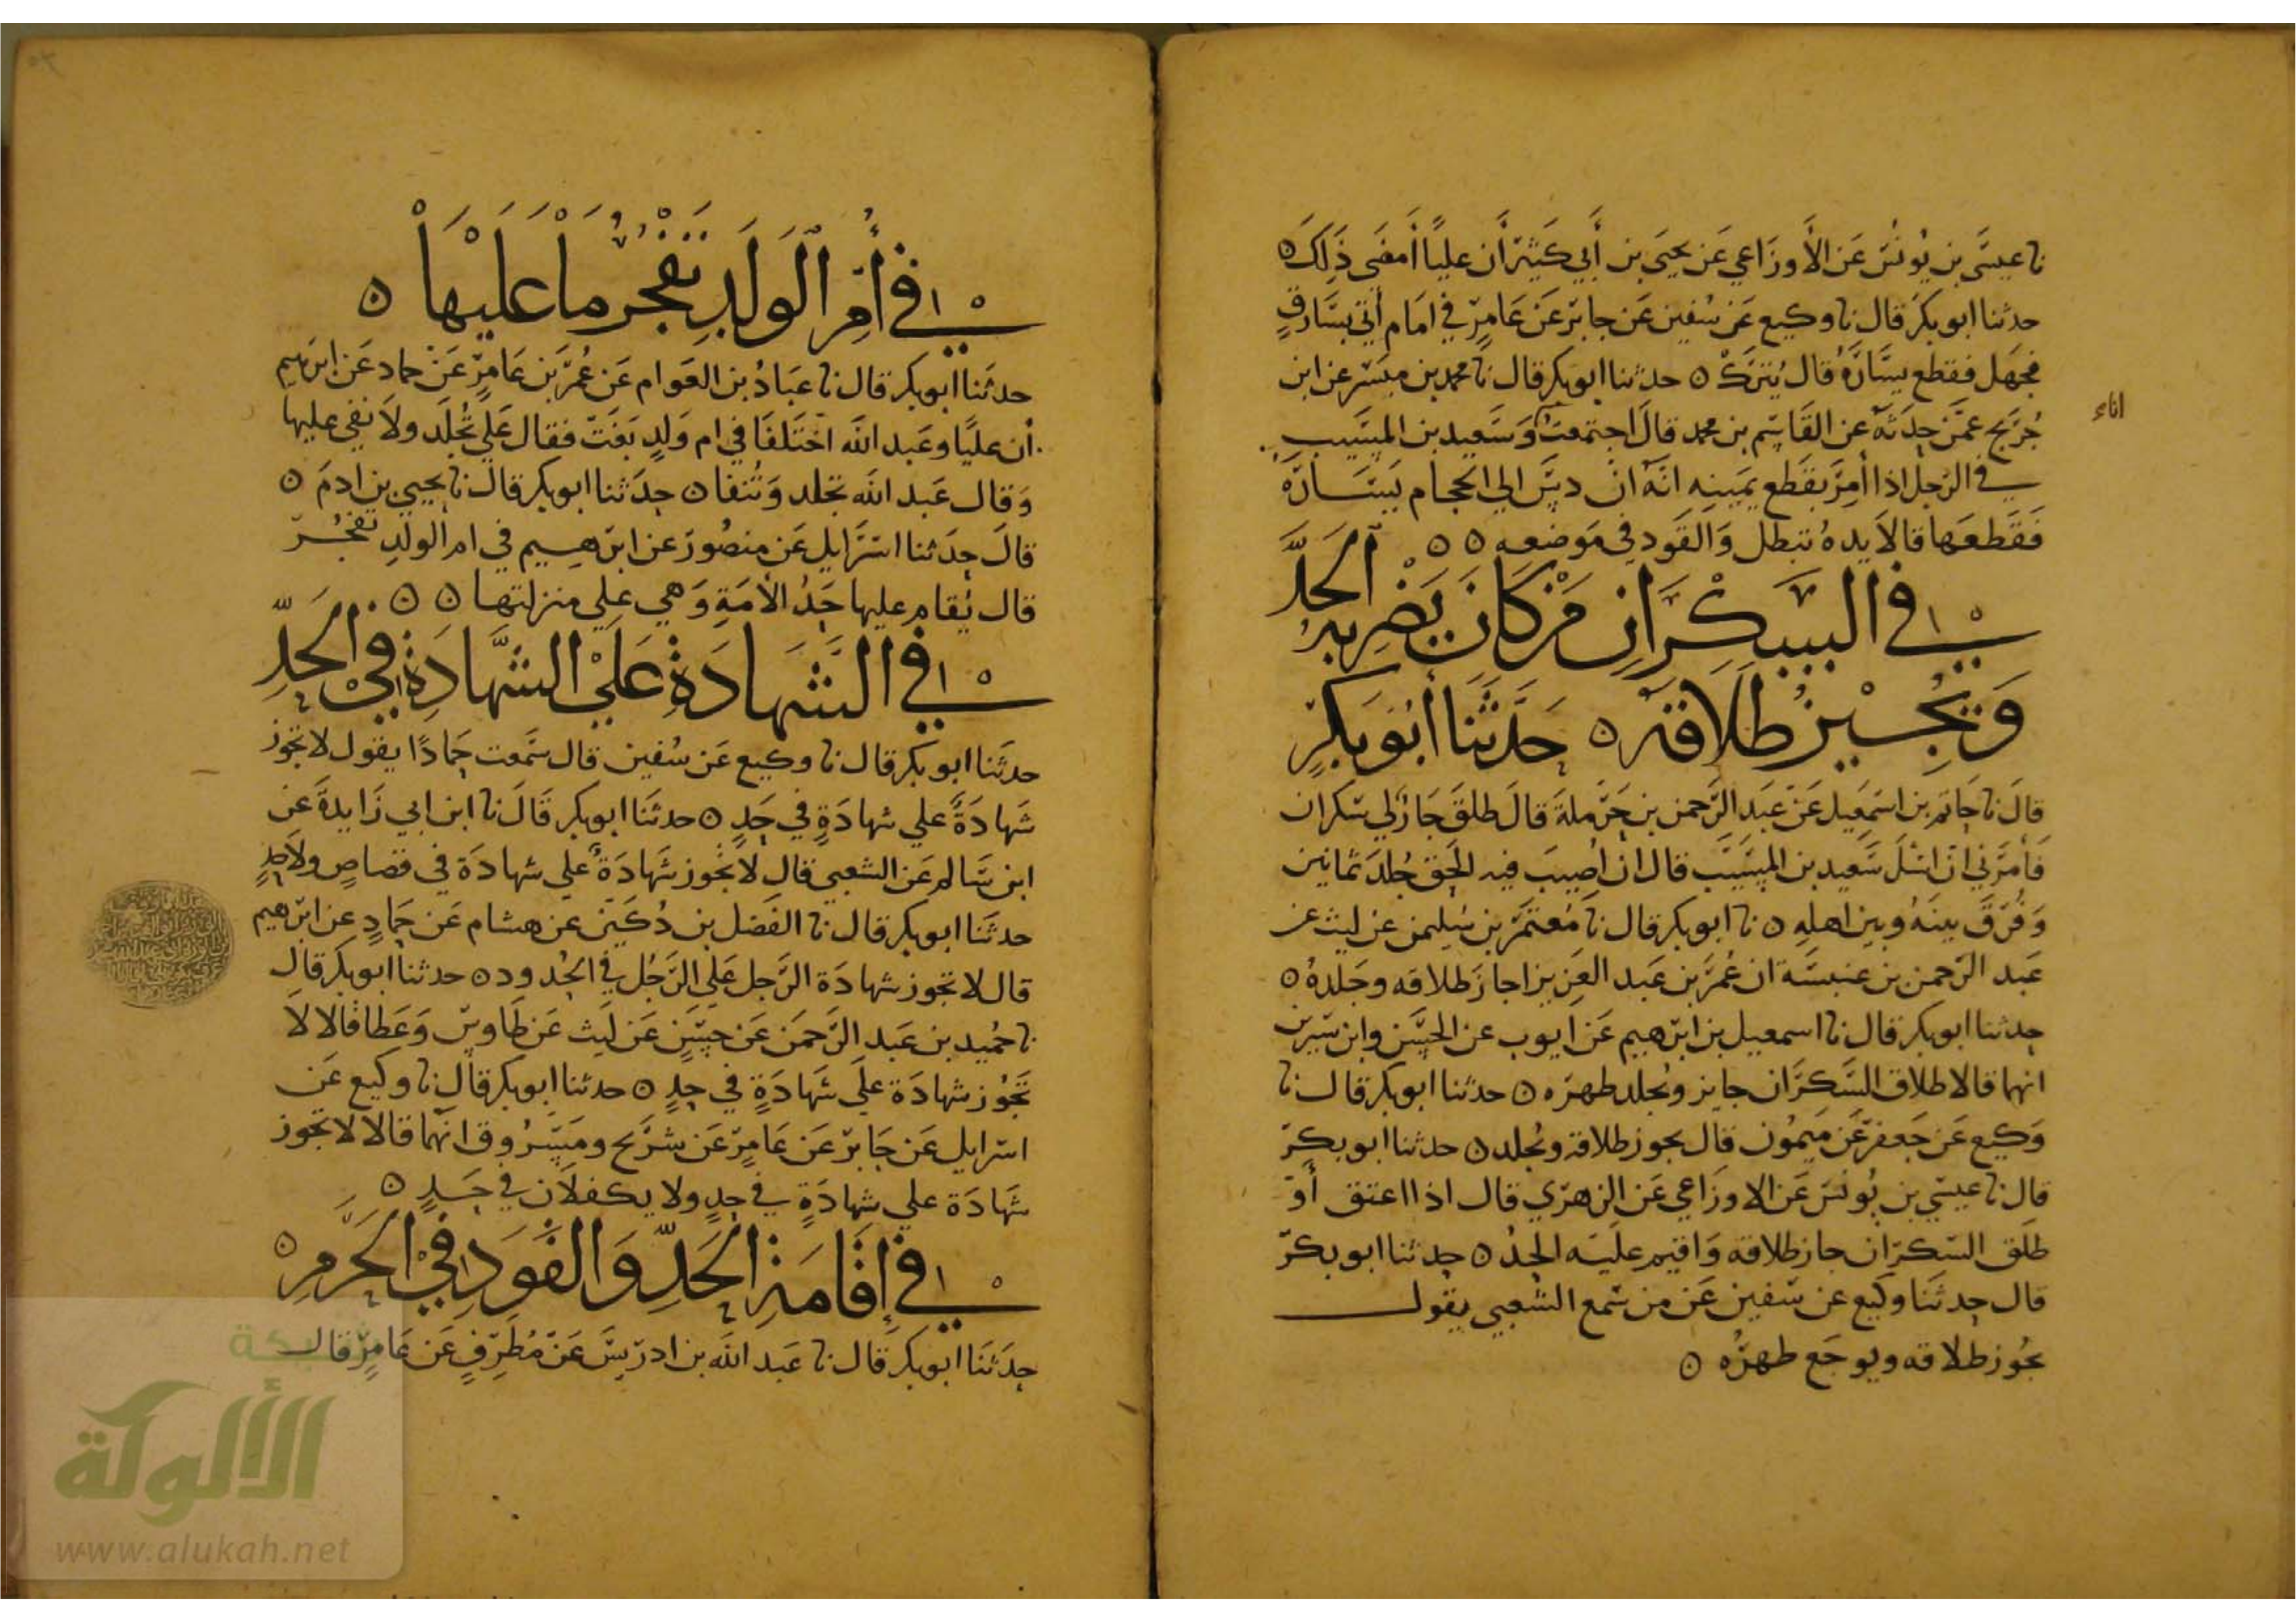 نا عيسَى بن يُونُسَ عَن الأَوزَاعي عَن يحيَى بن أَبي كَثيرٍ أَن علياً أَمضَى ذَلكَ ٥
حدثنا ابو بكر قال نا وكيع عَن سُفين عَن جابر عَن عَامِرٍ في امَام أُتي بسَارقٍ
فجهَل فقطع يسَارَهُ قال يُترَكُ ٥ حدثنا ابو بكر قال نا محمد بن ميسر عن ابن
جُرَيج عمَّن حدثهُ عن القَاسِم بن محمد قالَ اجتمعتُ وَسَعيد بن المسَيب
في الرَجل اذا أُمِرَ بقَطع يمَينِه انَهُ ان دسَّ الي الحجام يَسَارَهُ
فَقَطعَها قالا يدهُ تبطل وَالقَود في مَوضعه ٥ ٥
في السكرَان مَن كَانَ يَضربه الحَدَّ
وَيُجيزُ طَلاقَه ٥ حَدَّثَنَا أَبُو بَكرٍ
قالَ نا حَاتم بن اسمَعيل عَن عَبَد الرَّحمن بن حَرملةَ قالَ طلقَ جَارٌ لي سكران
فَأمَرَني ان اسَلَ سَعيد بن المسَيَّب قال ان اُصِيبَ فيه الحَق جُلدَ ثمانين
وَفُرِّقَ بينَهُ وبين اهلِهِ ٥ نا ابو بكر قال نا مُعتَمر بن سُليمن عن ليث عن
عَبد الرَّحمن بن عنبسَة ان عُمَر بن عَبد العَزيز اجازَ طلاقه وجَلدهُ ٥
حدثنا ابو بكر قال نا اسمعيل بن ابرَهيم عَن ايوب عن الحسَن وابن سيرين
انهما قالا طلاق السَّكرَان جايز ويُجلد ظهرَه ٥ حدثنا ابو بكر قال نا
وَكيع عَن جَعفَر عَن مَيمُون قال يجوز طلاقه ويُجلد ٥ حدثنا ابو بكر
قال نا عيسَي بن يُونسَ عَن الاوزَاعي عَن الزهرَي قال اذا اعتق أَو
طلَق السَكرَان جاز طلاقه وَاقيم عليَه الحدُ ٥ حدثنا ابو بكر
قال حدثَنا وكيع عن سَفين عَن من سَمع الشعبي يقول
يجُوز طلاقه ويوجَع ظهرُه ٥
اناء
في أُمِّ الوَلَدِ تَفجُرُ مَا عَلَيهَا ٥
حدثَنا ابو بكر قال نا عبَادُ بن العَوام عَن عُمَرَ بَن عَامِرٍ عَن حماد عَن ابرَهيم
أن عليًا وعَبد الله اختَلفَا في ام وَلدٍ بَغَت فقال عَلي تُجلَد ولا نفي عليها
وَقال عَبد الله تجلد وَتُنفا ٥ حدَثنا ابو بكر قال نا يحيي بن ادمَ ٥
قالَ حدَثنا اسرَايل عَن منصُور عن ابرَهيم في ام الولدِ تفجُر
قال يُقام عليها حَدُ الأمَةِ وَهي علي منزلتها ٥ ٥
في الشَهَادَةِ عَلَي الشَّهَادَةِ في الحَدِّ
حدثنا ابو بكر قال نا وكيع عَن سُفين قال سَمعت حَمادًا يقول لا تجوز
شَهادَةٌ علي شهادَةٍ في حَدٍ ٥ حدثنا ابو بكر قَالَ نا ابن ابي زَايدةَ عَن
ابن سَالم عَن الشعبي قال لا تُجوز شَهَادَةٌ علي شهادَة في قصاصٍ ولا حدٍ
حدثَنا ابو بكر قال نا الفَضل بن دُكَين عن هشام عَن حَمادٍ عن ابرَهيم
قال لا تجوز شهادَة الرَّجل عَلي الرَّجُل في الحُدود ٥ حدثنا ابو بكر قال
نا حُميد بن عَبد الرَّحمَن عَن حسَنٍ عَن لَيث عَن طَاوسٍ وَعَطا قالا لا
تَجُوز شهادَة علَي شَهَادَةٍ في حدٍ ٥ حدثنا ابو بكر قال نا وكيع عَن
اسرَايل عَن جَابر عَن عَامِرٍ عَن شُرَيح ومسَرُوق انهُما قالا لا تجوز
شَهَادَة علي شهادَةٍ في حدٍ ولا يكفلان في حَدٍ ٥
في إِقَامَةِ الحَدِّ وَالقَوَدِ في الحَرَمِ ٥
حدَثنَا ابو بكر قال نا عَبد الله بن ادرَيسَ عَن مُطَرِّفٍ عَن عَامِرٍ قال
شبكة
الألوكة
www.alukah.net